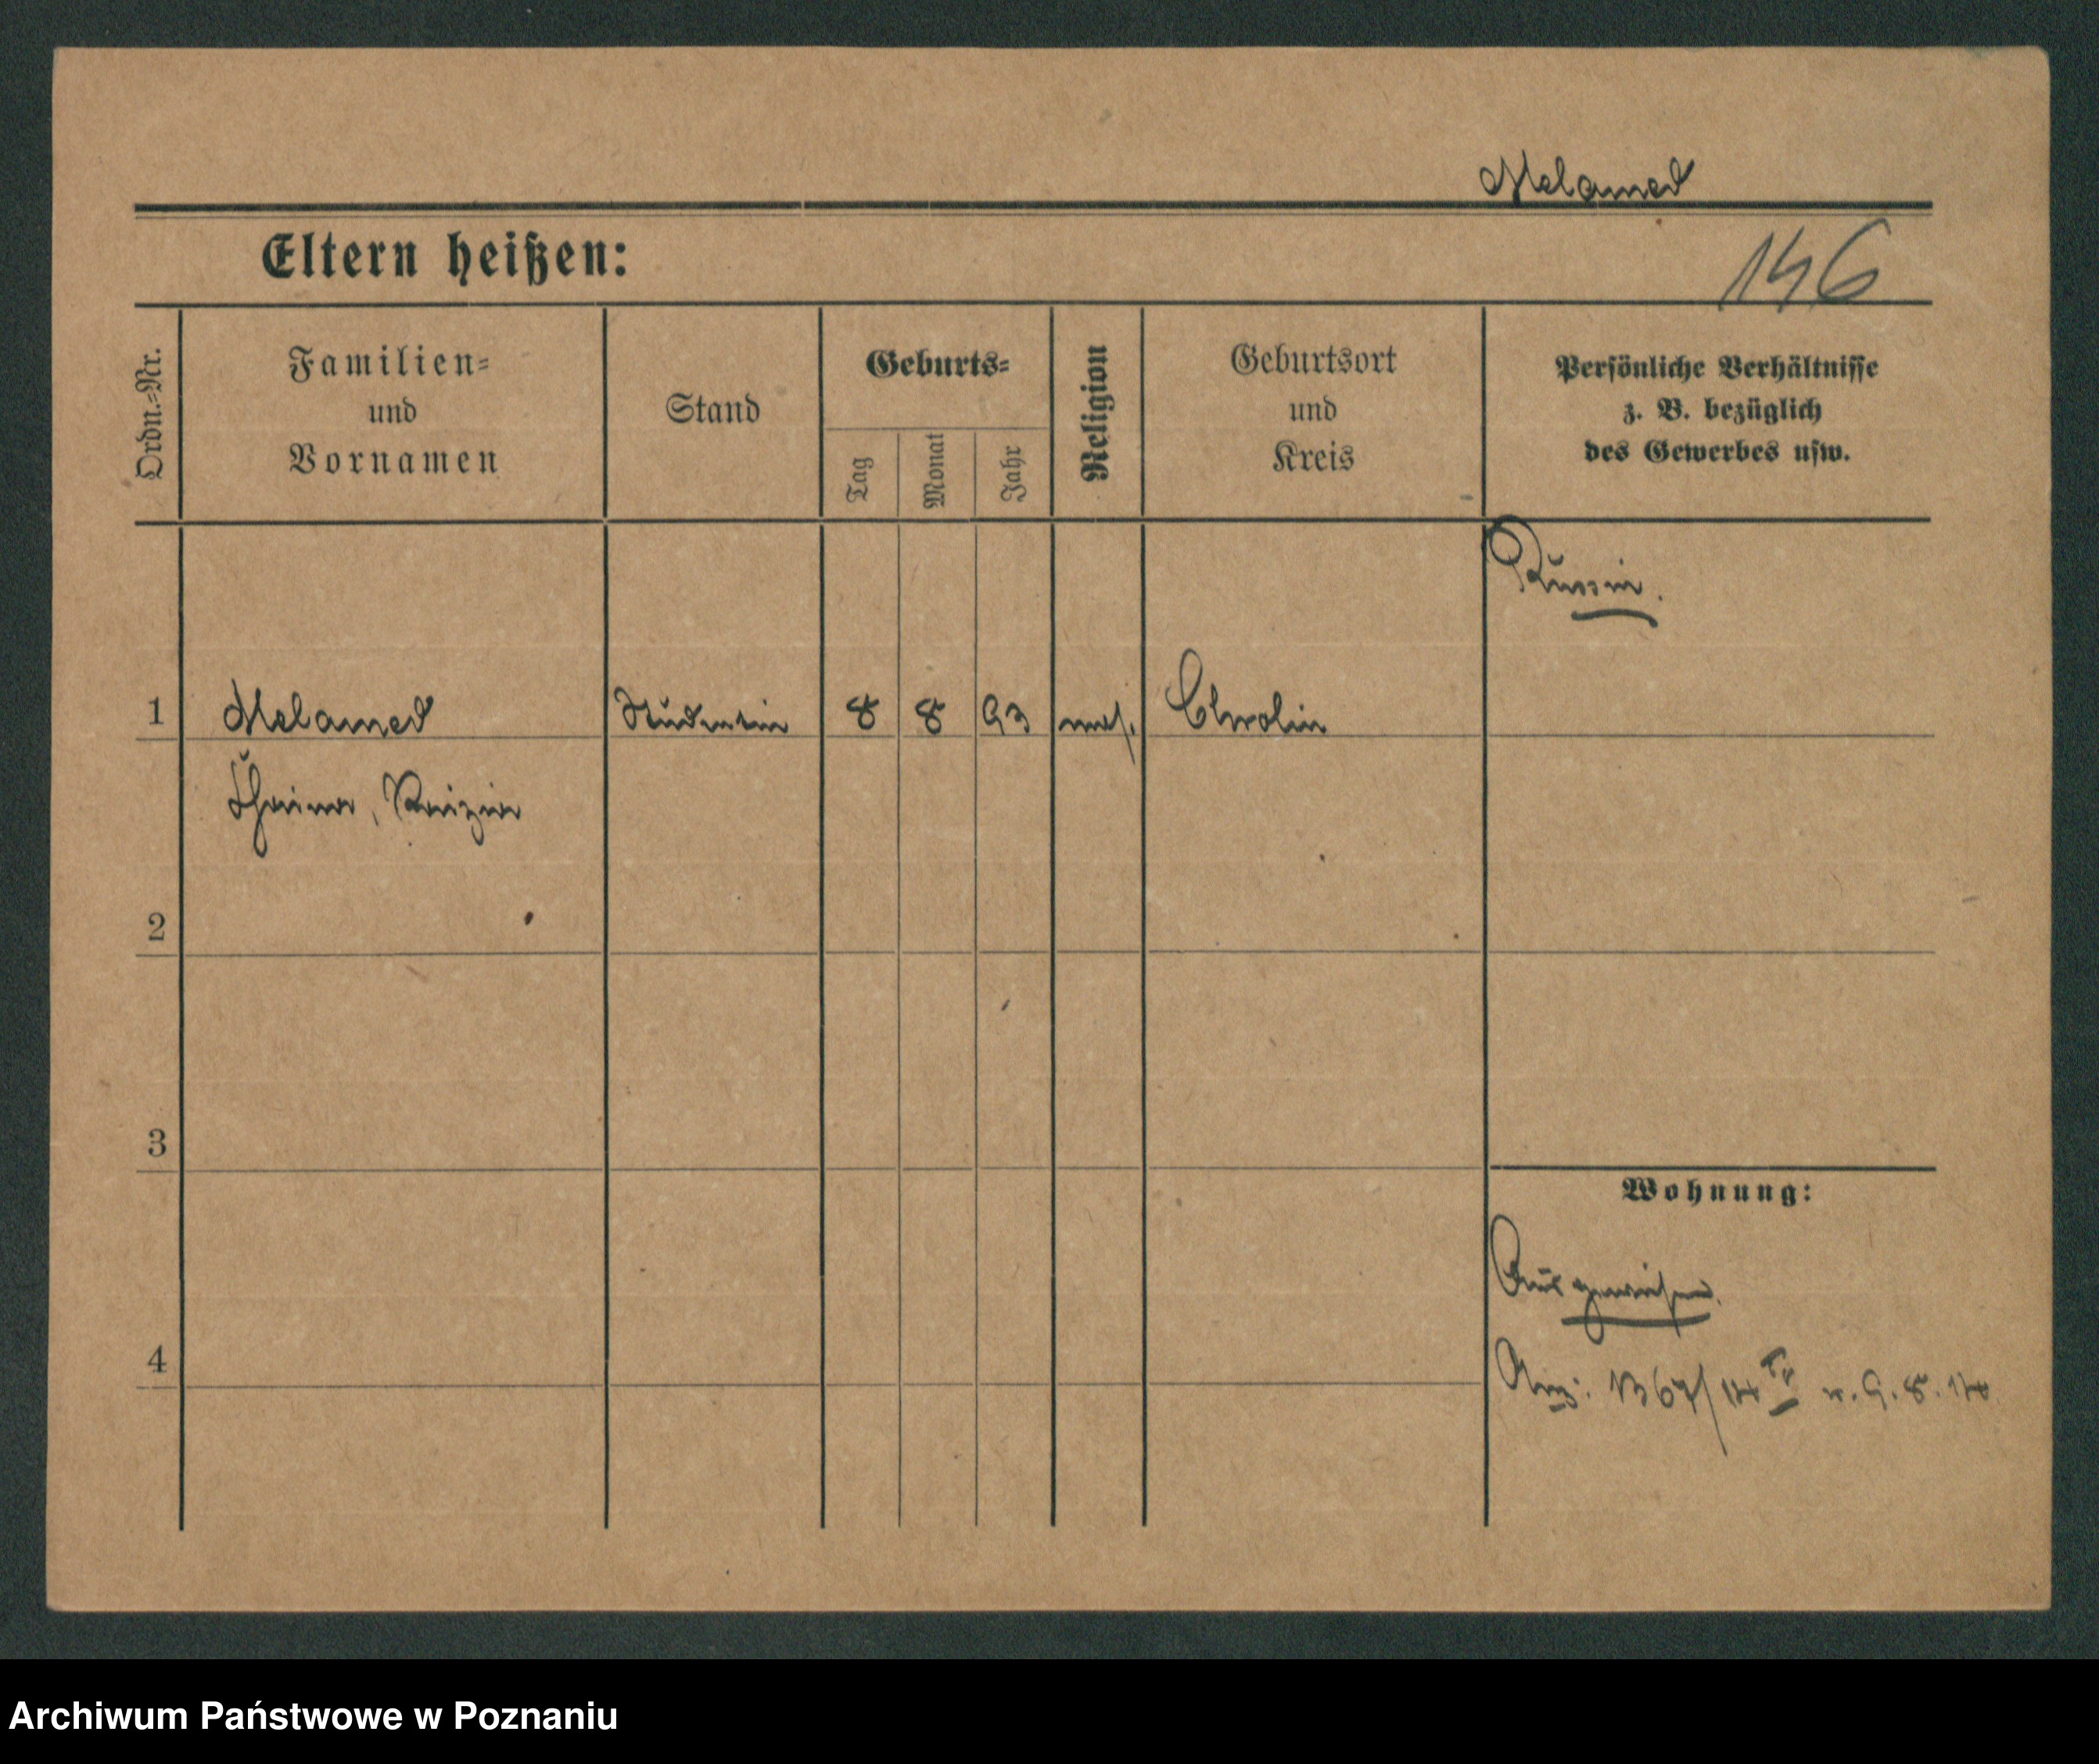 Melamed
146
Eltern heißen:
Ordn.-Nr.
Familien-
und
Vornamen
Stand
Geburts-
Tag
Monat
Jahr
Religion
Geburtsort
und
Kreis
Persönliche Verhältnisse
z. B. bezüglich
des Gewerbes usw.
Russin.
1 Melamed Studentin 8 8 93 mos. Chrolin
Reizia
2
3
Wohnung:
Ausgewiesen.
4
v. 9.8.14
Archiwum Państwowe w Poznaniu